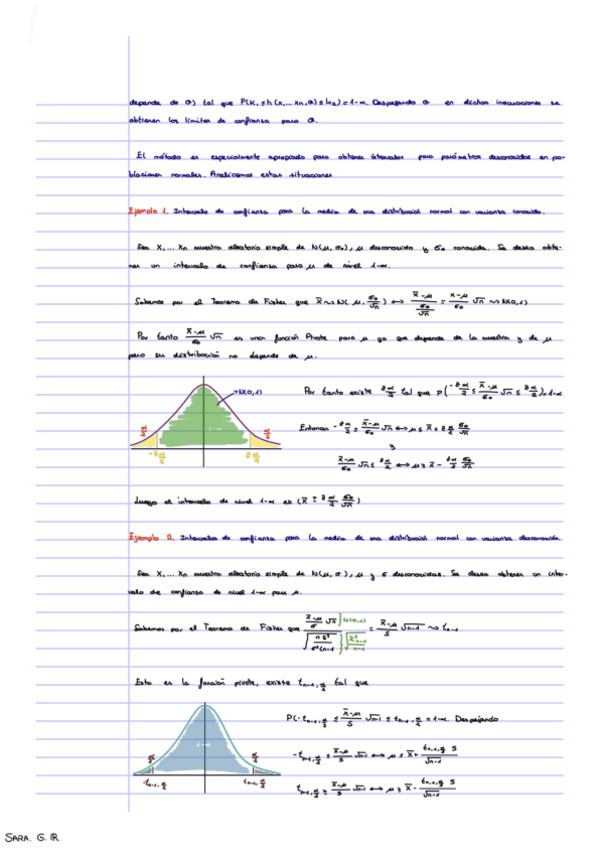 depende de θ) tal que P(K₁ ≤ h(x₁...xn,θ) ≤ k₂) = 1-α. Despejando θ en dichas inecuaciones se
obtienen los límites de confianza para θ.
El método es especialmente apropiado para obtener intervalos para parámetros desconocidos en po-
blaciones normales. Analicemos estas situaciones
Ejemplo 1. Intervalo de confianza para la media de una distribución normal con varianza conocida.
Sea X₁...Xn muestra aleatoria simple de N(μ, σ₀), μ desconocido y σ₀ conocida. Se desea obte-
ner un intervalo de confianza para μ de nivel 1-α.
Sabemos por el Teorema de Fisher que x̄ ~> N(μ, σ₀/√n) ⟺ (x̄-μ)/(σ₀/√n) = (x-μ)/σ₀ √n ~> N(0,1)
Por tanto (x̄-μ)/σ₀ √n es una función Pivote para μ ya que depende de la muestra y de μ
pero su distribución no depende de μ.
N(0,1)
Por tanto existe z α/2 tal que P(-z α/2 ≤ (x̄-μ)/σ₀ √n ≤ z α/2) = 1-α
Entonces -z α/2 ≤ (x̄-μ)/σ₀ √n ⟺ μ ≤ x̄ + z α/2 σ₀/√n
α/2 α/2
-z α/2 z α/2
y
(x̄-μ)/σ₀ √n ≤ z α/2 ⟺ μ ≥ x̄ - z α/2 σ₀/√n
Luego el intervalo de nivel 1-α es (x̄ ∓ z α/2 σ₀/√n)
Ejemplo 2. Intervalos de confianza para la media de una distribución normal con varianza desconocida
Sea X₁...Xn muestra aleatoria simple de N(μ, σ), μ y σ desconocidas. Se desea obtener un inter-
valo de confianza de nivel 1-α para μ.
Sabemos por el Teorema de Fisher que ((x̄-μ)/σ √n } N(0,1)) / (√(n S²/σ²(n-1)) } √(χ²n-1/n-1)) = (x̄-μ)/S √n-1 ~> tn-1
Esta es la función pivote, existe tn-1, α/2 tal que
P(-tn-1, α/2 ≤ (x̄-μ)/S √n-1 ≤ tn-1, α/2 = 1-α. Despejando
1-α
-tn-1, α/2 ≤ (x̄-μ)/S √n-1 ⟺ μ ≤ x̄ + tn-1, α/2 S/√n-1
α/2 α/2
-tn-1, α/2 tn-1, α/2
tn-1, α/2 ≥ (x̄-μ)/S √n-1 ⟺ μ ≥ x̄ - tn-1, α/2 S/√n-1
SARA. G. R.